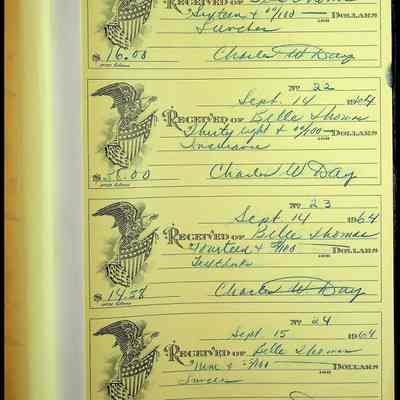 RECEIVED OF Belle Thomas
Sixteen & 00/100 — 100 DOLLARS
Lunches
$ 16.00 Charles W Day
No 22
Sept. 14 1964
RECEIVED OF Belle Thomas
Thirty Eight & 00/100 — DOLLARS
100
Insurance
$ 38.00 Charles W Day
No 23
Sept. 14 1964
RECEIVED OF Belle Thomas
Fourteen & /100 DOLLARS
100
Textbooks
$ 14.58 Charles W Day
No 24
Sept. 15 1964
RECEIVED OF Belle Thomas
Nine & /100 DOLLARS
100